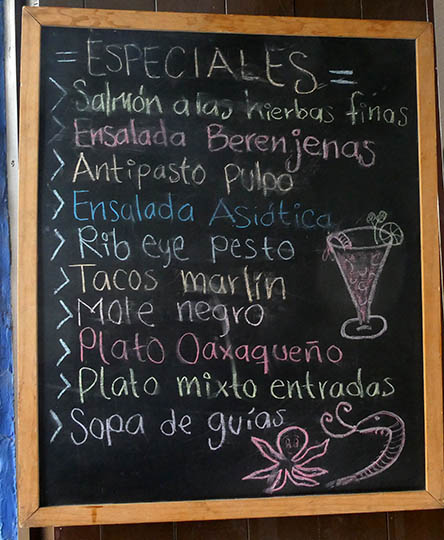 = ESPECIALES =
> Salmón a las hierbas finas
> Ensalada Berenjenas
> Antipasto Pulpo
> Ensalada Asiática
> Rib eye pesto
> Tacos marlín
> Mole negro
> Plato Oaxaqueño
> Plato mixto entradas
> Sopa de guías